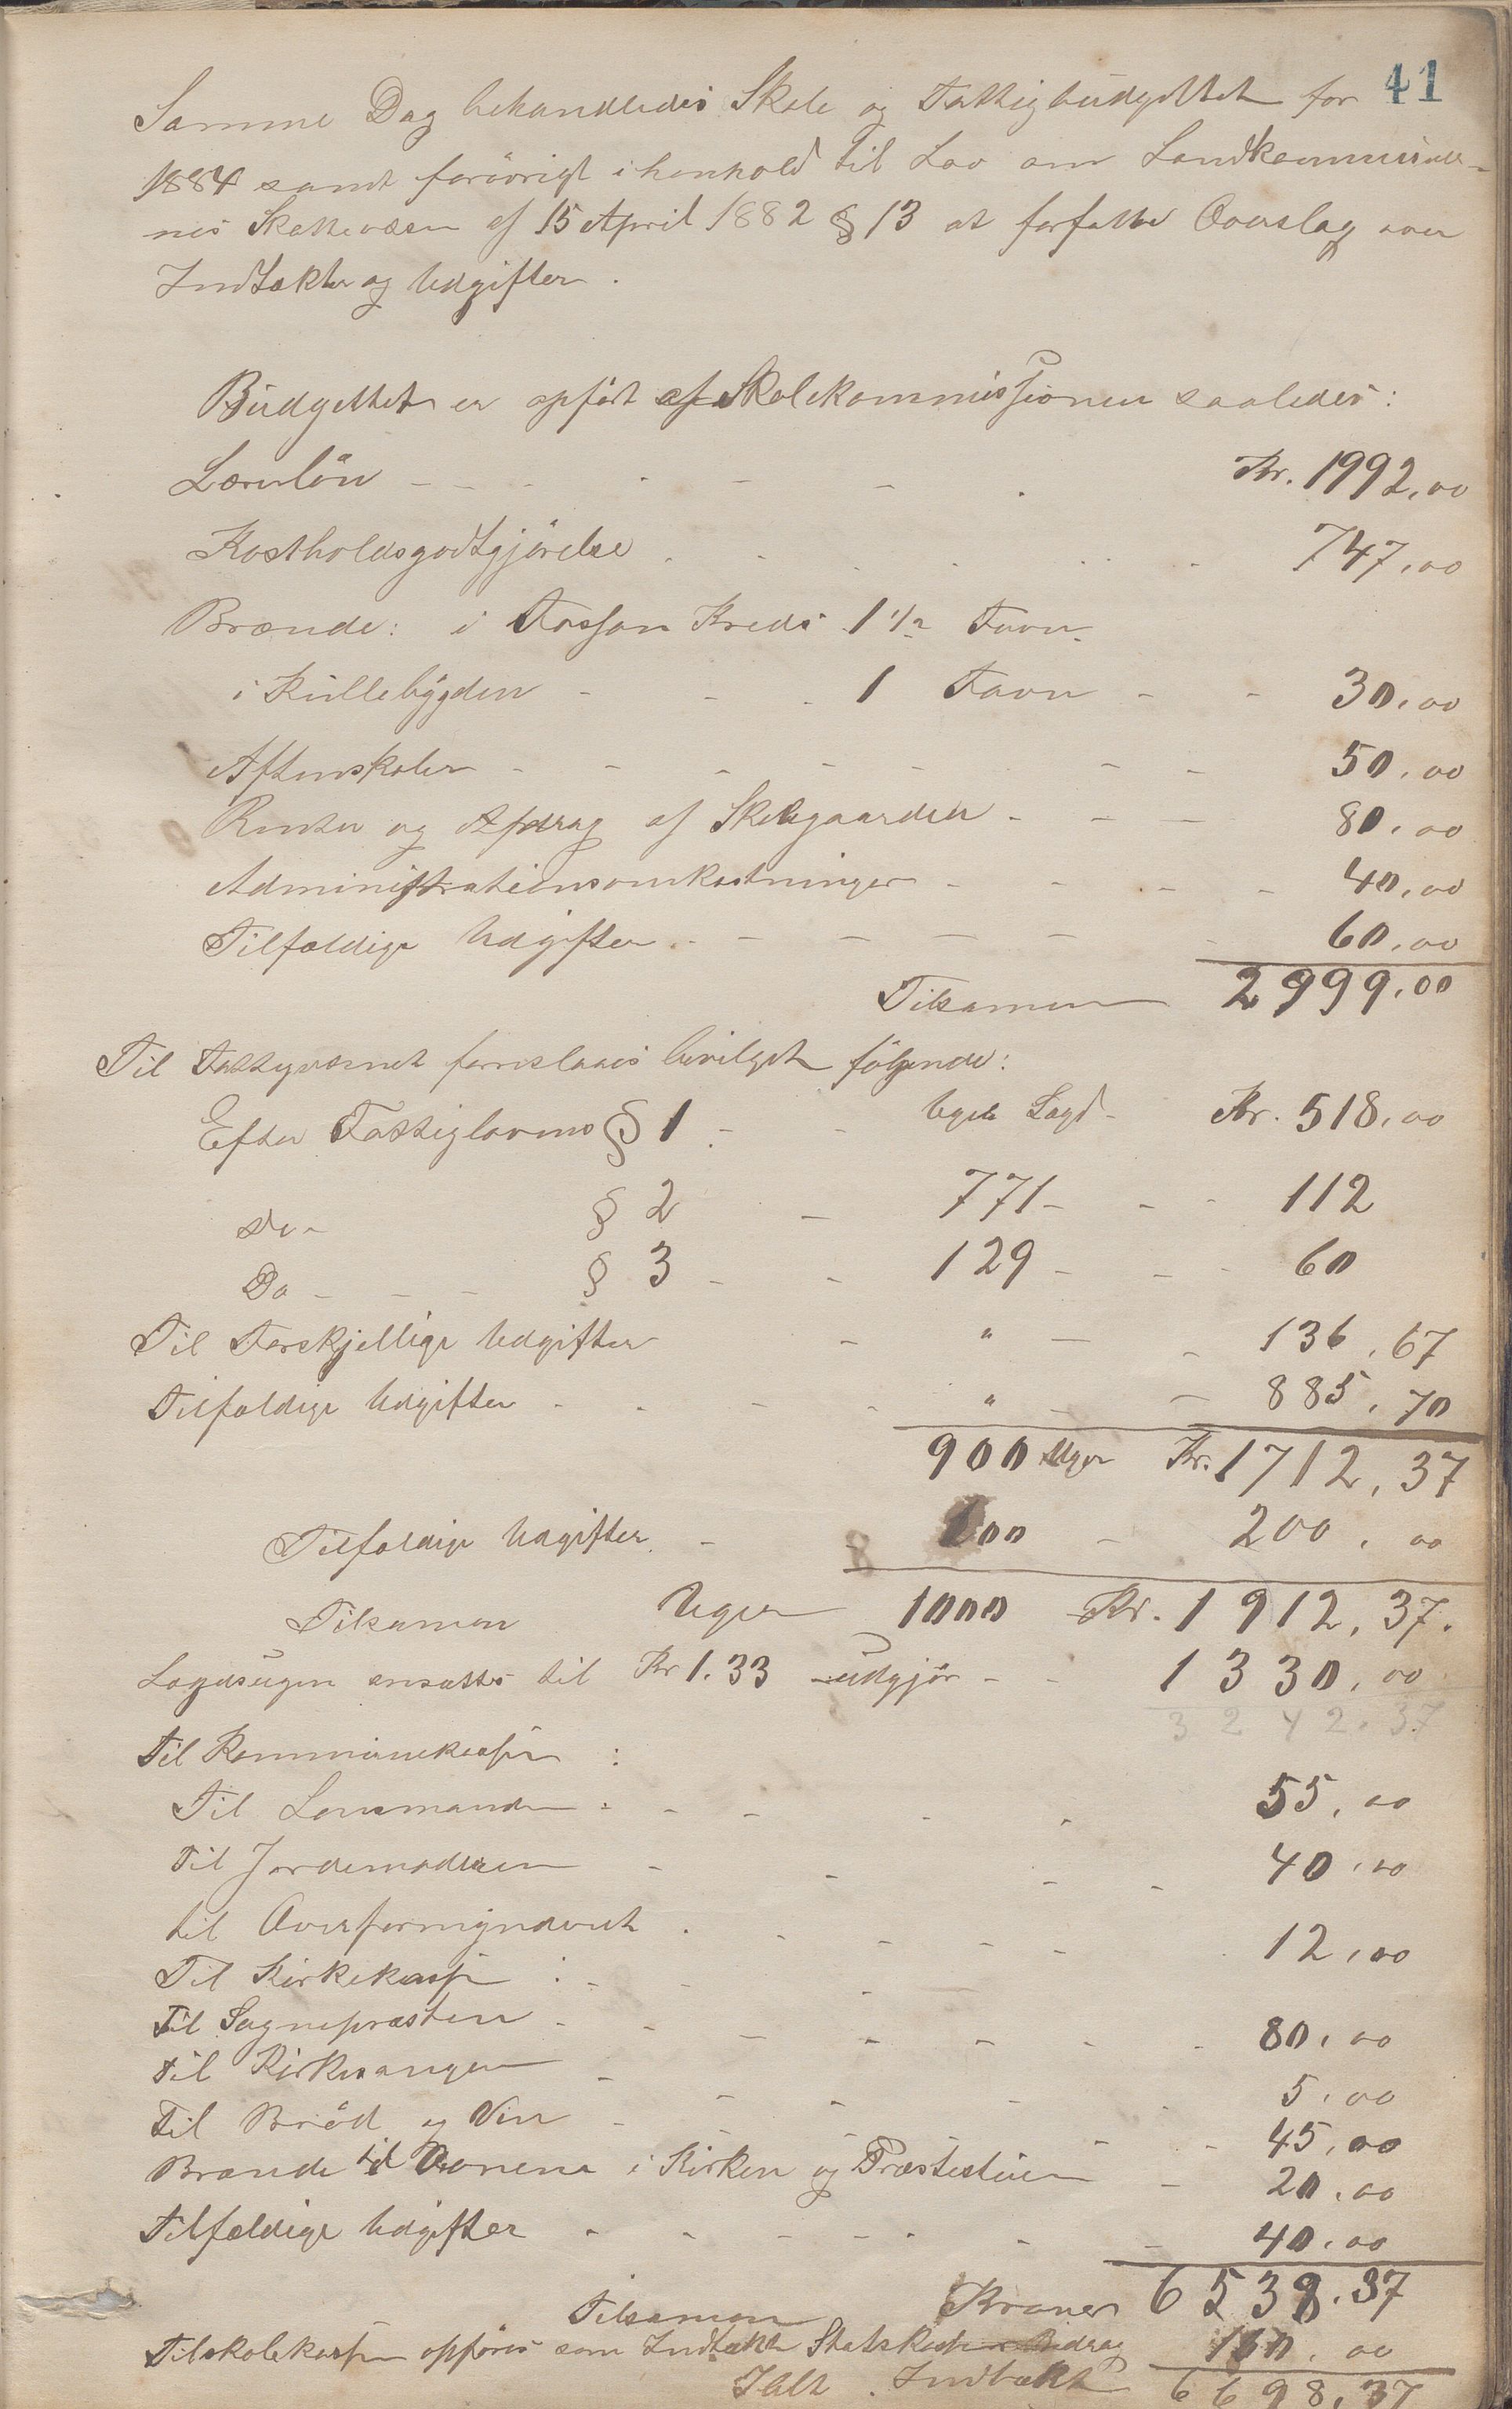 41
Samme Dag behandledes Skole og Fattigbudgettet for
1884 samt forövrigt i henhold til Lov om Landkommuner-
nes Skattevæsen af 15 April 1882 § 13 at forfatte Overslag over
Indtækter og Udgifter.
Budgettet er opfört af Skolekommissionen saaledes:
Lærerlön - - - Kr. 1992,00
Kostholdsgodtgjörelse 747,00
Brænde: i Fossan Kreds 1 1/2 Favn.
i Kullebygden - - 1 Favn - - 30,00
Aftenskoler - - - - - - 50,00
Renter og Afdrag af Skolegaarden - - - 80,00
Administrationsomkostninger - - - - 40,00
Tilfældige Udgifter - - - - - 60,00
Tilsamen 2999,00
Til Fattigvæsnet foreslaaes bevilget följende:
Efter Fattiglovens § 1 - - Uger Lægd - Kr. 518,00
Do - § 2 - 771 - - - 112
Do - - - § 3 - - 129 - - - 60
Til Forskjellige Udgifter - " - - 136,67
Tilfældige Udgifter - - - - " - - 885,70
900 Uger Kr. 1712,37
Tilfældige Udgifter - 100 - 200,00
Tilsamen Uger 1000 Kr. 1912,37.
Lægdsugen ansættes til Kr 1.33 udgjör - - 1330,00
3242,37
Til Kommunekassen :
Til Lensmanden - - - - - 55,00
Til Jordemoderen - - - - 40,00
til Overformynderiet - - - - - 12,00
Til Kirkekassen : -
Til Sognepræsten - - - - - - - 80,00
Til Kirkesangeren - - - - - 5,00
Til Bröd og Vin - - - - - 45,00
Brænde til Ovnene i Kirken og Præstestuen - 20,00
Tilfældige Udgifter - - - - - - - 40,00
Tilsamen Kroner 6538,37
Til skolekassen opföres som Indtækt Statskassens Bidrag 160,00
Ialt Indtækt 6698,37